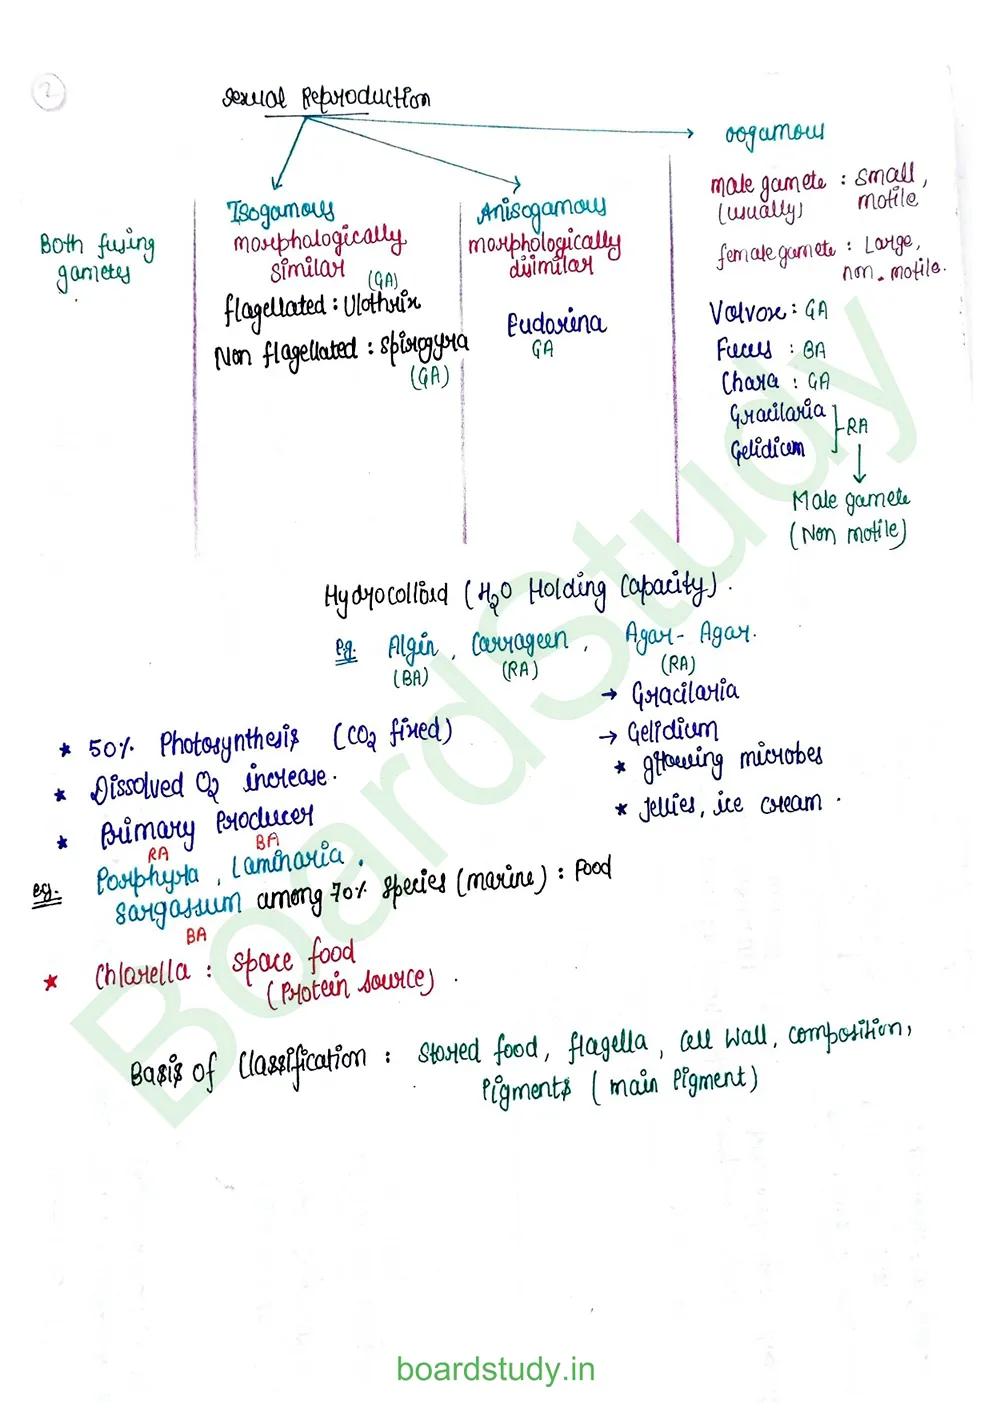 2
Sexual Reproduction
oogamous
male gamete : small,
(usually) motile
female gamete : Large,
non-motile.
Both fusing
gametes
Isogamous
morphologically
similar
(GA)
flagellated : Ulothrix
Non flagellated : Spirogyra
(GA)
Anisogamous
morphologically
disimilar
Eudorina
GA
Volvox : GA
Fucus : BA
Chara : GA
Gracilaria
Gelidium
RA
Male gamete
(Non motile)
Hydrocolloid (H₂O Holding Capacity).
eg. Algin, Carrageen, Agar-Agar.
(BA) (RA) (RA)
→ Gracilaria
→ Gelidium
* growing microbes
* Jellies, ice cream.
* 50% Photosynthesis (CO₂ fixed)
* Dissolved O₂ increase.
* Primary Producer
RA BA
eg. Porphyra, Laminaria,
Sargassum among 70% species (marine) : Food
BA
* Chlorella : space food
(Protein source).
Basis of Classification : Stored food, flagella, Cell Wall, composition,
Pigments (main Pigment)
BoardStudy
boardstudy.in